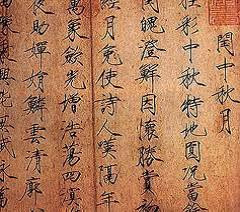 閏中秋月
桂彩中秋特地圓況當餘
閏魄澄鮮因懷勝賞初
經月免使詩人嘆隔年
萬象斂光增浩蕩四溟
夜助嬋娟鱗雲清廓